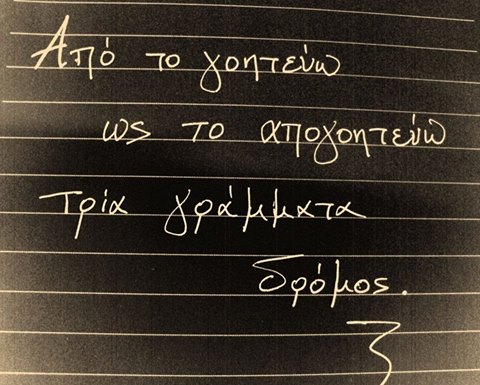 Από το γοητεύω
ως το απογοητεύω
τρία γράμματα
δρόμος.